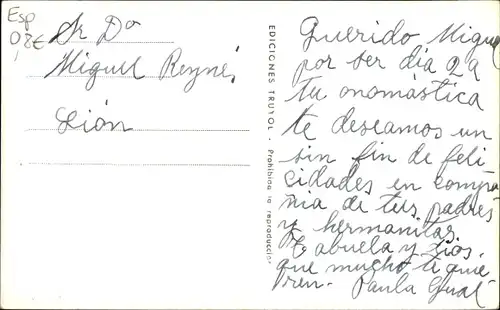 Esp
0,8€
Sr Dº
Miguel Reynés,
Lión
EDICIONES TRUYOL - Prohibida la reproducción
Querido Miguel
por ser día 29
tu onomástica
te deseamos un
sin fin de feli
cidades en compa
nia de tus padres
y hermanitas.
Tu abuela y tios,
que mucho te quie
ren. Paula Gual